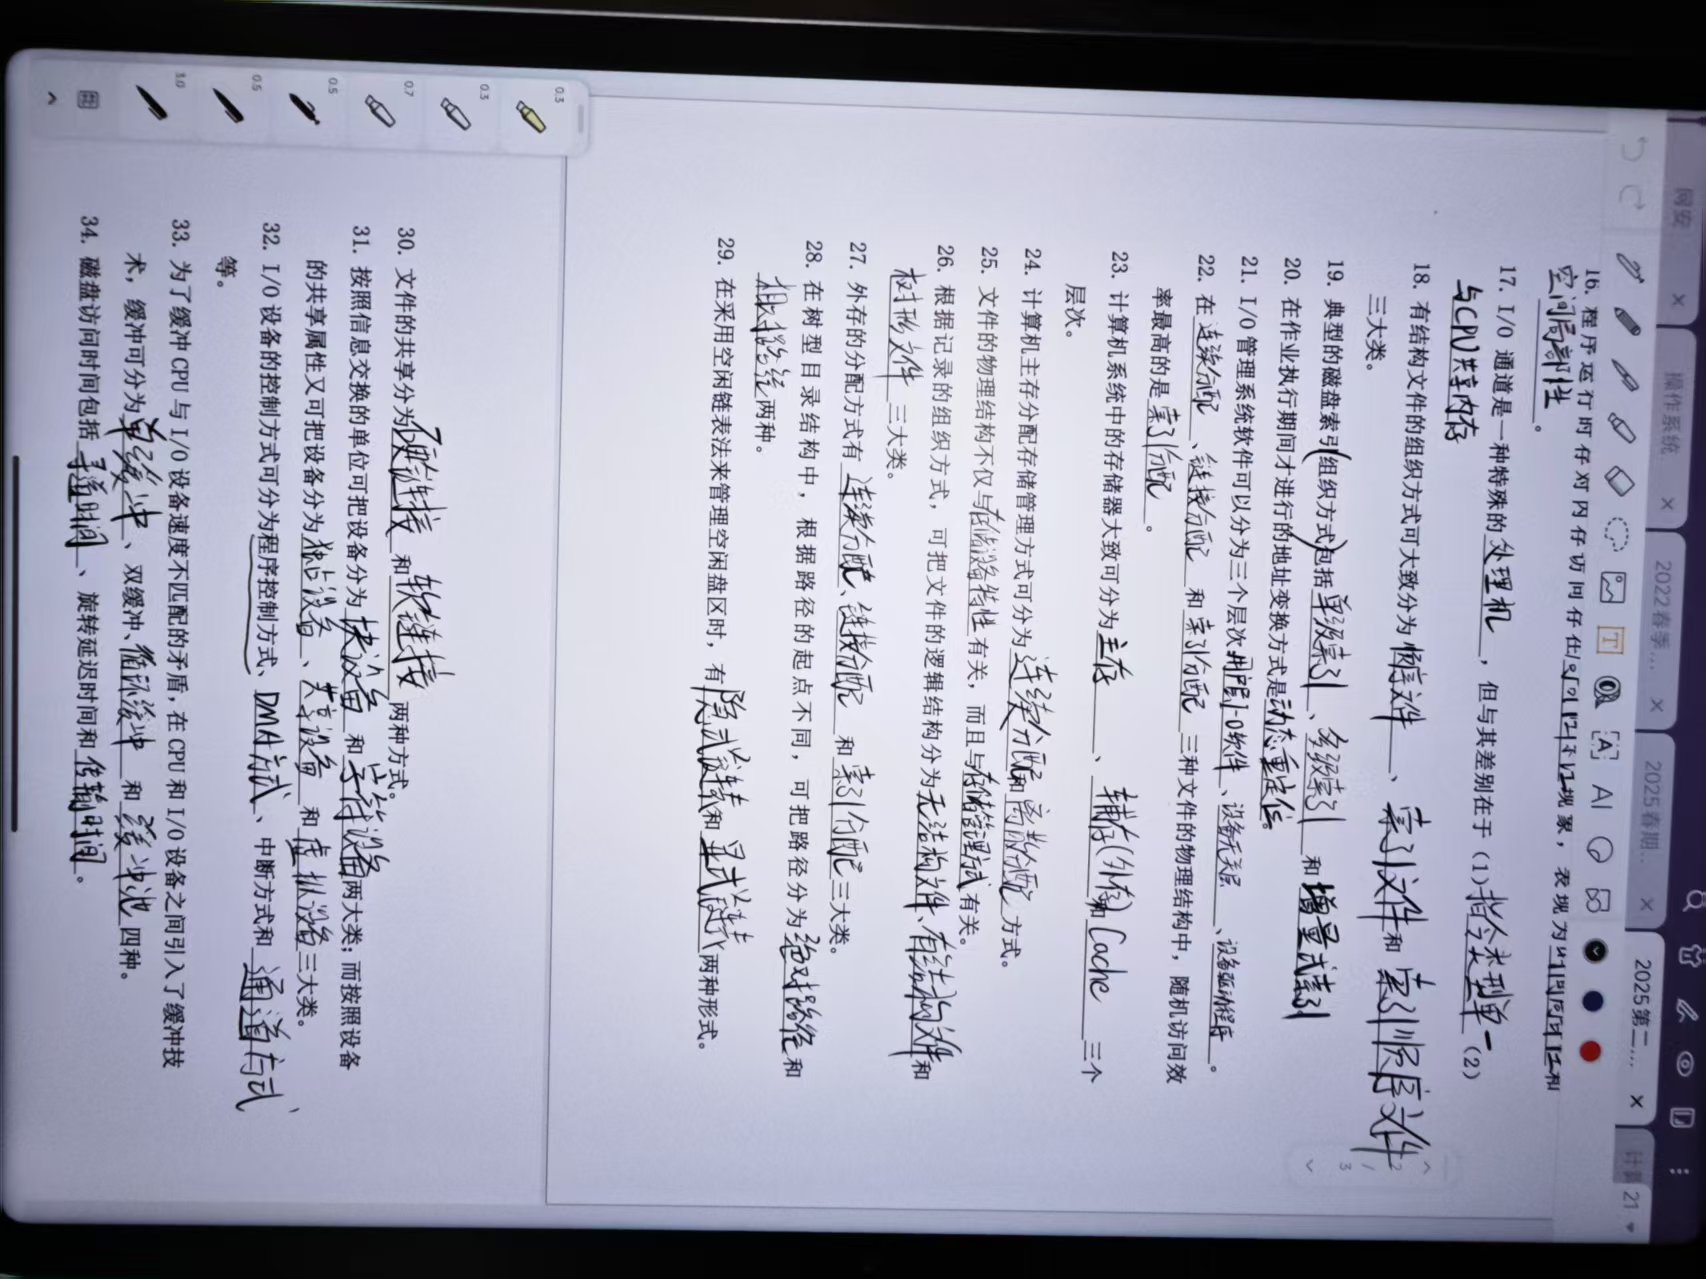 网安
操作系统
2022春季...
2025春期...
2025第二...
计算
21
16. 程序运行时存在对内存访问存在局部性现象，表现为时间局部性和
空间局部性。
17. I/O 通道是一种特殊的处理机，但与其差别在于 (1)指令类型单一 (2)
与CPU共享内存
18. 有结构文件的组织方式可大致分为 顺序文件、索引文件和 索引顺序文件
三大类。
19. 典型的磁盘索引(组织方式)包括 单级索引、多级索引 和增量式索引
20. 在作业执行期间才进行的地址变换方式是动态重定位。
21. I/O 管理系统软件可以分为三个层次用户层I-O软件、设备无关层、设备驱动程序。
22. 在连续分配、链接分配 和 索引分配 三种文件的物理结构中，随机访问效
率最高的是 索引分配。
23. 计算机系统中的存储器大致可分为主存、辅存(外存)和 Cache 三个
层次。
24. 计算机主存分配存储管理方式可分为 连续分配和离散分配 方式。
25. 文件的物理结构不仅与存储设备特性有关，而且与存储管理方式有关。
26. 根据记录的组织方式，可把文件的逻辑结构分为无结构文件、有结构文件和
树形文件 三大类。
27. 外存的分配方式有 连续分配、链接分配 和 索引分配三大类。
28. 在树型目录结构中，根据路径的起点不同，可把路径分为绝对路径和
相对路径两种。
29. 在采用空闲链表法来管理空闲盘区时，有隐式链接和 显式链接两种形式。
30. 文件的共享分为硬链接 和 软链接 两种方式。
31. 按照信息交换的单位可把设备分为块设备 和 字符设备两大类；而按照设备
的共享属性又可把设备分为独占设备、共享设备 和虚拟设备三大类。
32. I/O 设备的控制方式可分为程序控制方式、DMA方式、中断方式和 通道方式、
等。
33. 为了缓冲 CPU 与 I/O 设备速度不匹配的矛盾，在 CPU 和 I/O 设备之间引入了缓冲技
术，缓冲可分为单缓冲、双缓冲、循环缓冲 和 缓冲池 四种。
34. 磁盘访问时间包括 寻道时间、旋转延迟时间和 传输时间。
2 / 3
0.3
0.3
0.7
0.5
0.5
1.0